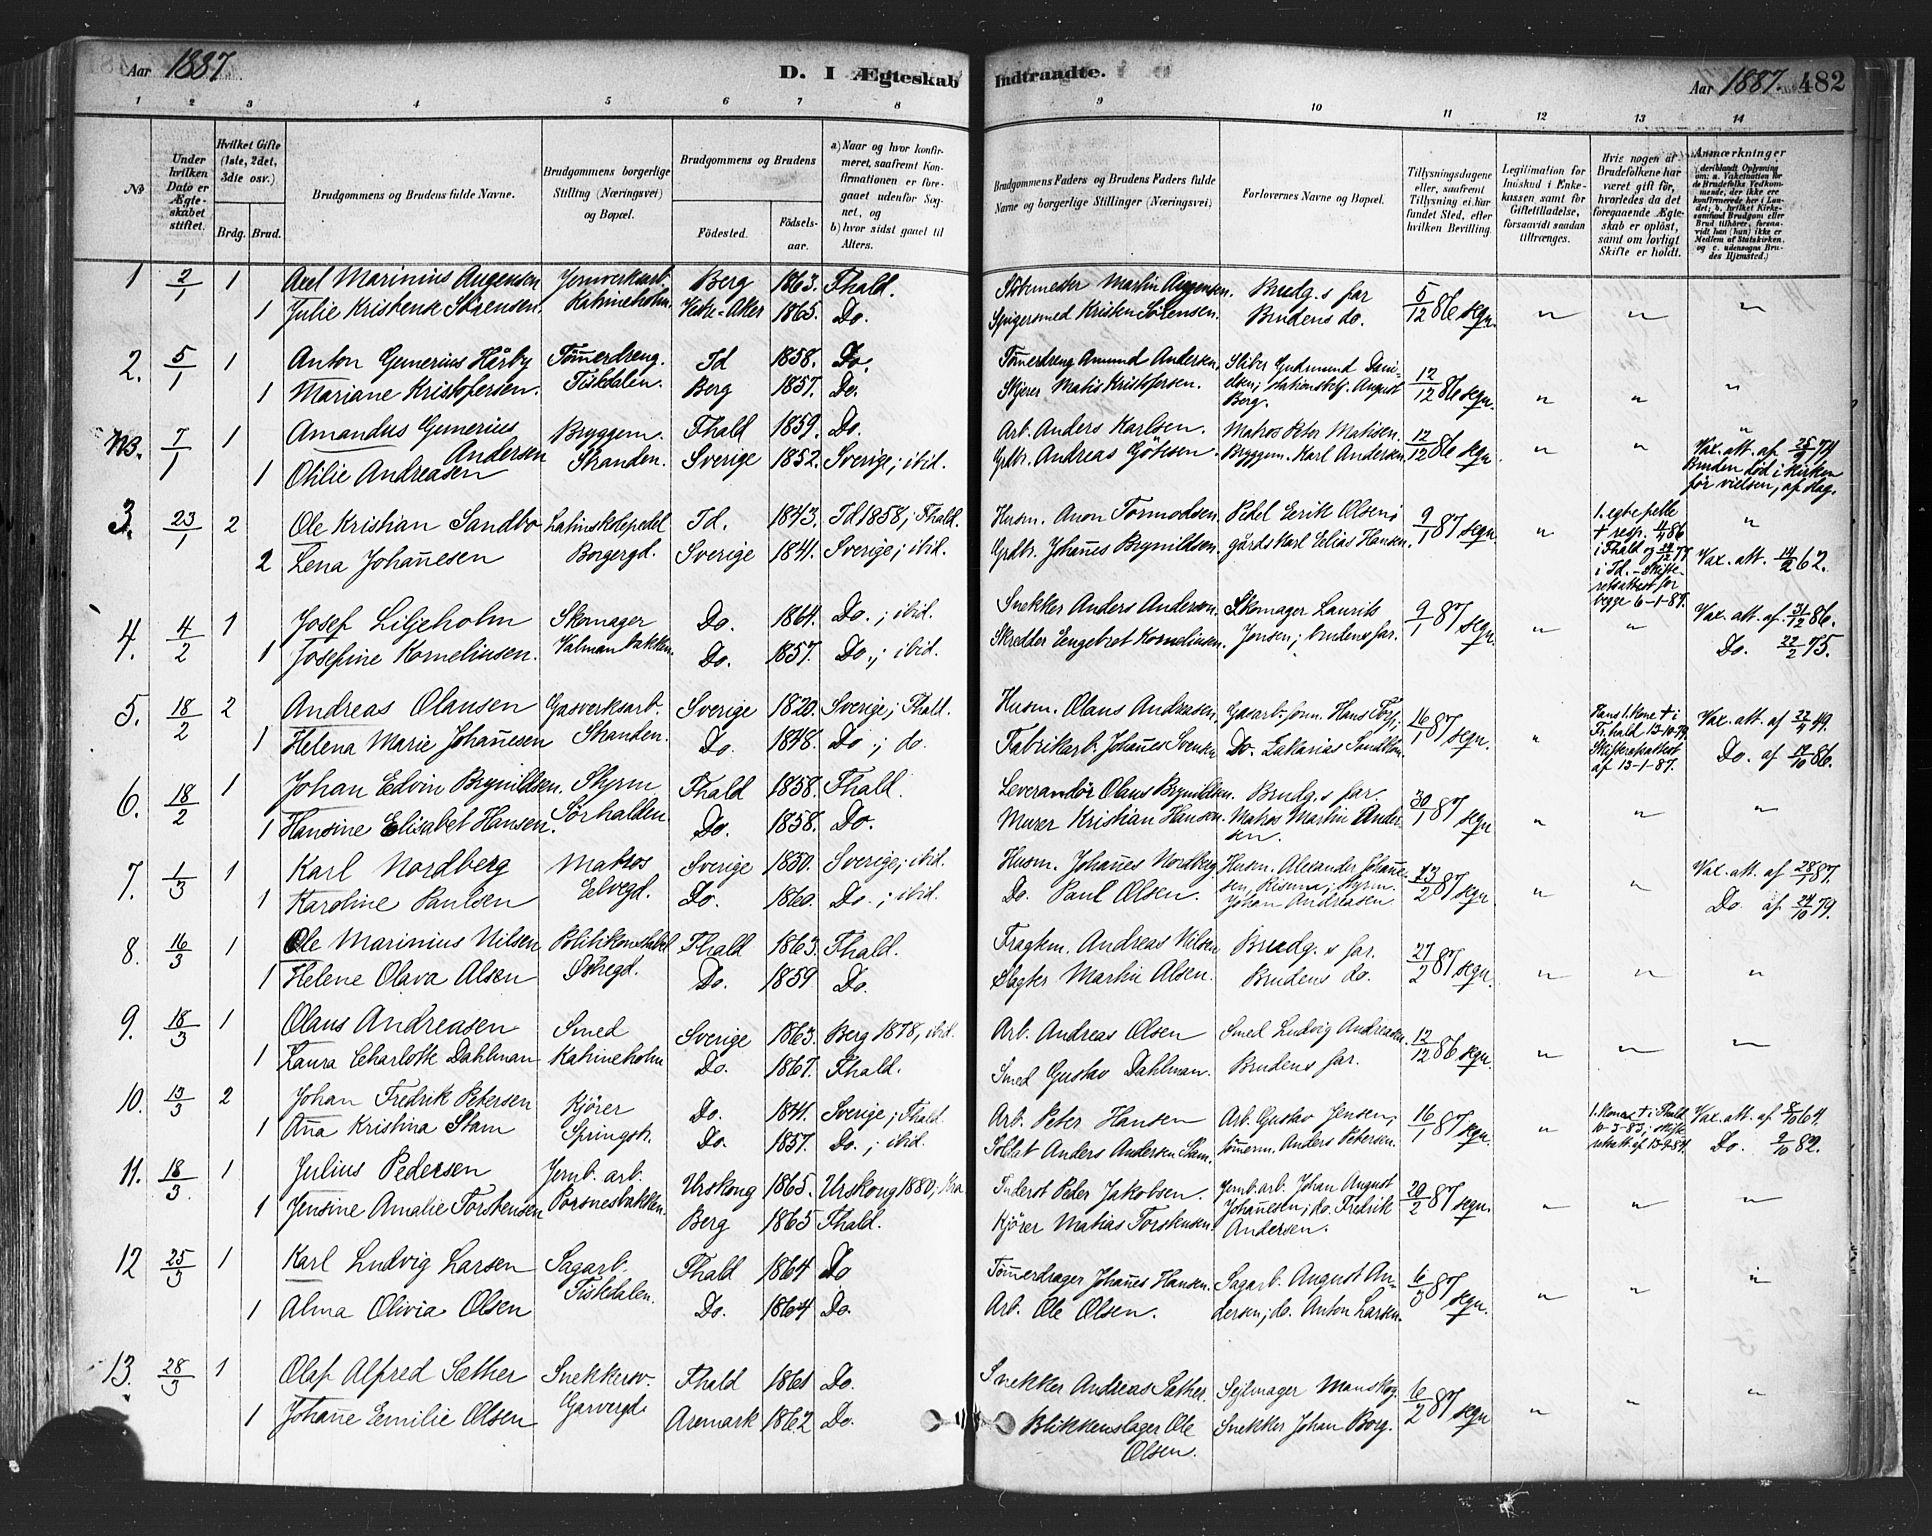 Aar 1887.
D. I Ægteskab Indtraadte.
Aar 1887. 482
1 2 3 4 5 6 7 8 9 10 11 12 13 14
No
Under hvilken Dato er Ægteskabet stiftet.
Hvilket Gifte (1ste, 2det, 3die osv.)
Brdg. Brud.
Brudgommens og Brudens fulde Navne.
Brudgommens borgerlige Stilling (Næringsvei) og Bopæl.
Brudgommens og Brudens
Födested. Födselsaar.
a) Naar og hvor konfirmeret, saafremt Konfirmationen er foregaaet udenfor Sognet, og
b) hvor sidst gaaet til Alters.
Brudgommens Faders og Brudens Faders fulde Navne og borgerlige Stillinger (Næringsvei)
Forlovernes Navne og Bopæl.
Tillysningsdagene eller, saafremt Tillysning ei har fundet Sted, efter hvilken Bevilling.
Legitimation for Indskud i Enkekassen samt for Giftetilladelse, forsaavidt saadan tiltrænges.
Hvis nogen af Brudefolkene har været gift før, hvorledes da det foregaaende Ægteskab er oplöst, samt om lovligt Skifte er holdt.
Anmærkninger
1 2/1 1 Axel Marinius Augensen Jernverksarb. Berg 1863. Fhald. Martin Augensen. Brudg.s far 5/12 86 segn.
1 Julie Kristense Sörensen. Katrineholm. Vestr-Aker 1865. Do. Spigersmed Kristen Sörensen. Brudens do. " " "
2. 5/1 1 Anton Gunerius Hårby Tömerdreng. Id 1858. Do. Tömerdreng Amund Andersen Sliber Gudmund Dani- 12/12 86 segn.
1 Mariane Kristofersen. Fiskdalen. Berg 1857. Do. Skjörer Matis Kristofersen. elsen; stationsbetj. August Berg. " " "
n3. 7/1 1 Amandus Gunerius Andersen Bryggem. Fhald 1859. Do. Arb. Anders Karlsen. Matros Peter Matisen. 12/12 86 segn. " " "
1 Otilie Andreasen Stranden. Sverige 1852. Sverige; ibid. Grdbr. Andreas Götesen. Bryggem. Karl Andersen Vax. att. af 25/9 74
Bruden död i kirken før vielsen, af slag.
3. 23/1 2 Ole Kristian Sandbo Latinskolepedel Id. 1843. Id 1858; Fhald. Husm. Aron Tormodsen Pedel Eerik Olsen; 9/1 87 segn. " 1. egtepelle † resp. 4/4 86 i Fhald og 24/12 77 i Id. - Skifteretsattest for begge 6-1-87. "
2 Lena Johañesen Borgergd. Sverige 1841. Sverige; ibid. Grdbr. Johañes Brynildsen gårdskarl Eelias Hansen. Vax. att. 14/2 62.
4. 4/2 1 Josef Liljeholm Skomager Do. 1864. Do.; ibid. Snekker Anders Anderson. Skomager Laurits 9/1 87 segn. " " Vax. att. af 31/12 86.
1 Josefine Korneliusen. Valmanbakken Do. 1857. Do.; ibid. Skredder Eengebret Korneliusen. Jensen; brudens far. Do. 22/2 75.
5. 18/2 2 Andreas Olausen Gasverksarb. Sverige 1820. Sverige; Fhald. Husm. Olaus Andreasen. 16/1 87 segn. " Hans 1. kone † i Fr.hald 13-10-79 Skifteretsattest af 13-1-87. Vax. att. af 27/4 49.
1 Helena Marie Johañesen Stranden. Do. 1848. Do; do. Fabrikarb. Johañes Svensen Do. Zakarias Sandbom. Do. af 17/10 86.
6. 18/2 1 Johan Edvin Brynildsen. Styrm Fhald 1858. Fhald. Leverandör Olaus Brynildsen. Brudg.s far. 30/1 87 segn. " " "
1 Hansine Elisabet Hansen. Sörhalden. Do. 1858. Do. Murer Kristian Hansen. Matros Martin Andersen.
7. 1/3 1 Karl Nordberg Matros Sverige 1850. Sverige; ibid. Husm. Johañes Nordberg Husm. Alexander Johañesen, 13/2 87 segn. " " Vax. att. af 28/1 87.
1 Karoline Paulsen Eelvegd. Do. 1860. Do.; ibid. Do. Paul Olsen. Styrm. Johan Andreasen. Do. af 24/10 79.
8. 16/3 1 Ole Marinius Nilsen Politikonstabel Fhald 1863. Fhald. Fragtm. Andreas Nilsen Brudg.s far. 27/2 87 segn.
1 Helene Olava Alsen Østregd. Do. 1859 Do. Slagter Martin Alsen. Brudens do. " " "
9. 18/3 1 Olaus Andreasen Smed Sverige 1863. Berg 1878, ibid. Arb. Andreas Olsen Smed Ludvig Andreasen. 12/12 86 segn.
1 Laura Charlotte Dahlman Katrineholm Do. 1867. Fhald. Smed Gustav Dahlman. Brudens far. " " "
10. 13/3 2 Johan Fredrik Petersen Kjörer Do. 1841. Sverige; Fhald. Arb. Peter Hansen Arb. Gustav Jensen; 16/1 87 segn. " 1. kone † i Fhald 10-3-83; skifteretsatt. af Vax. att. af 8/10 64.
1 Aña Kristina Stam Springstr. Do. 1857. Do.; ibid. Soldat Anders Andersen Stam. tömerm. Anders Petersen. Do. 9/10 82.
11. 18/3. 1 Julius Pedersen Jernb. arb. Urskong 1865. Urskong 1880; Kra Inderst Peter Jakobsen. Jernb. arb. Johan August 20/2 87 segn.
1 Jensine Amalie Torstensen Porsnesbakken. Berg 1865 Fhald. Kjörer Matias Torstensen. Johañesen; do. Fredrik Andersen. " " "
12 25/3 1 Karl Ludvig Larsen Sagarb. Fhald 1864 Do Tömerdrager Johañes Hansen. Sagarb. August An- 6/3 87 segn.
1 Alma Olivia Olsen Fiskdalen. Do. 1864 Do. Arb. Ole Olsen. dersen; do. Anton Larsen. " " "
13. 28/3 1 Olaf Alfred Sæther Snekkersv. Fhald 1861 Do. Snekker Andreas Sæther. Sejlmager Manskog 6/2 87 segn
1 Johañe Eemilie Olsen Garvergd. Aremark 1862 Do. Blikkenslager Ole Olsen. Snekker Johan Borg. " " "